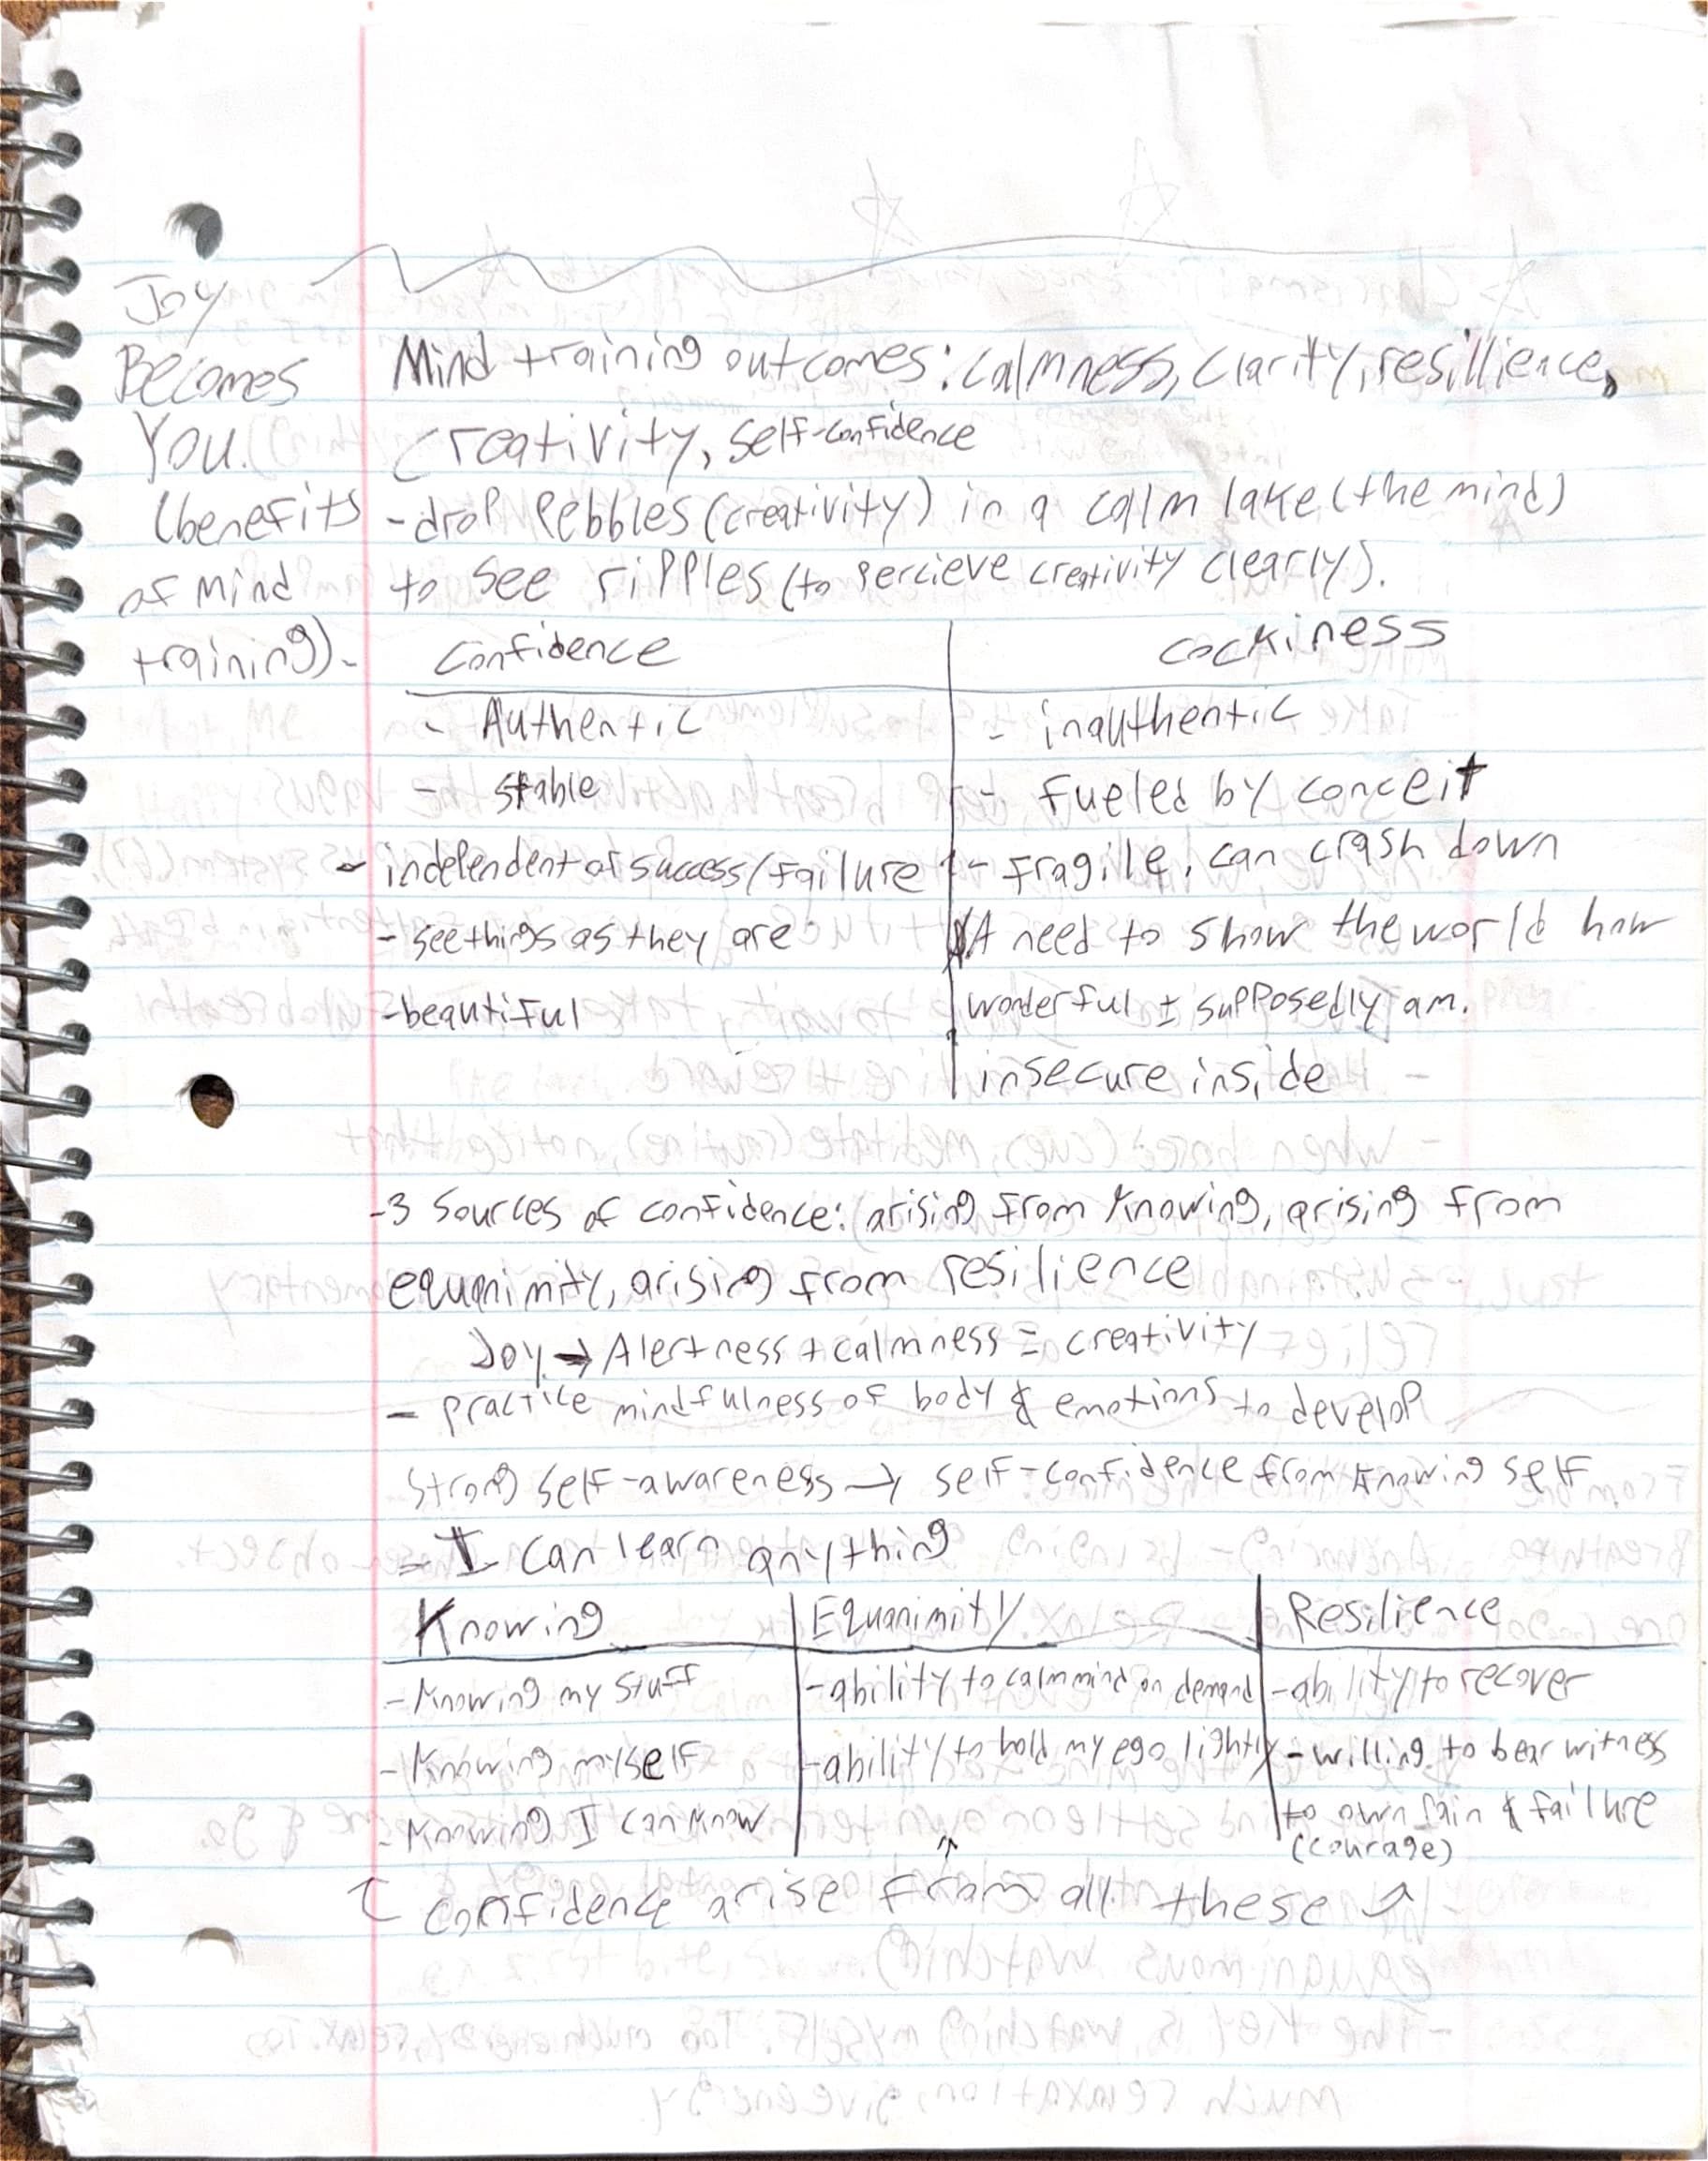 Joy
Becomes
You.
(benefits
of mind
training).
Mind training outcomes: calmness, clarity, resillience,
creativity, self-confidence
-drop pebbles (creativity) in a calm lake (the mind)
to see ripples (to percieve creativity clearly).
Confidence | cockiness
- Authentic | - inauthentic
- stable | - fueled by conceit
- independent of success/failure | - fragile, can crash down
- see things as they are | A need to show the world how
-beautiful | wonderful I supposedly am.
insecure inside
-3 sources of confidence: arising from knowing, arising from
equanimity, arising from resilience
Joy → Alertness + calmness = creativity
- practice mindfulness of body & emotions to develop
strong self-awareness → self-confidence from knowing self
- I can learn anything
Knowing | Equanimity | Resilience
- Knowing my stuff | -ability to calm mind on demand | -ability to recover
- Knowing myself | -ability to hold my ego lightly | - willing to bear witness
- Knowing I can know | to own pain & failure
(courage)
↑ confidence arise from all these ↗